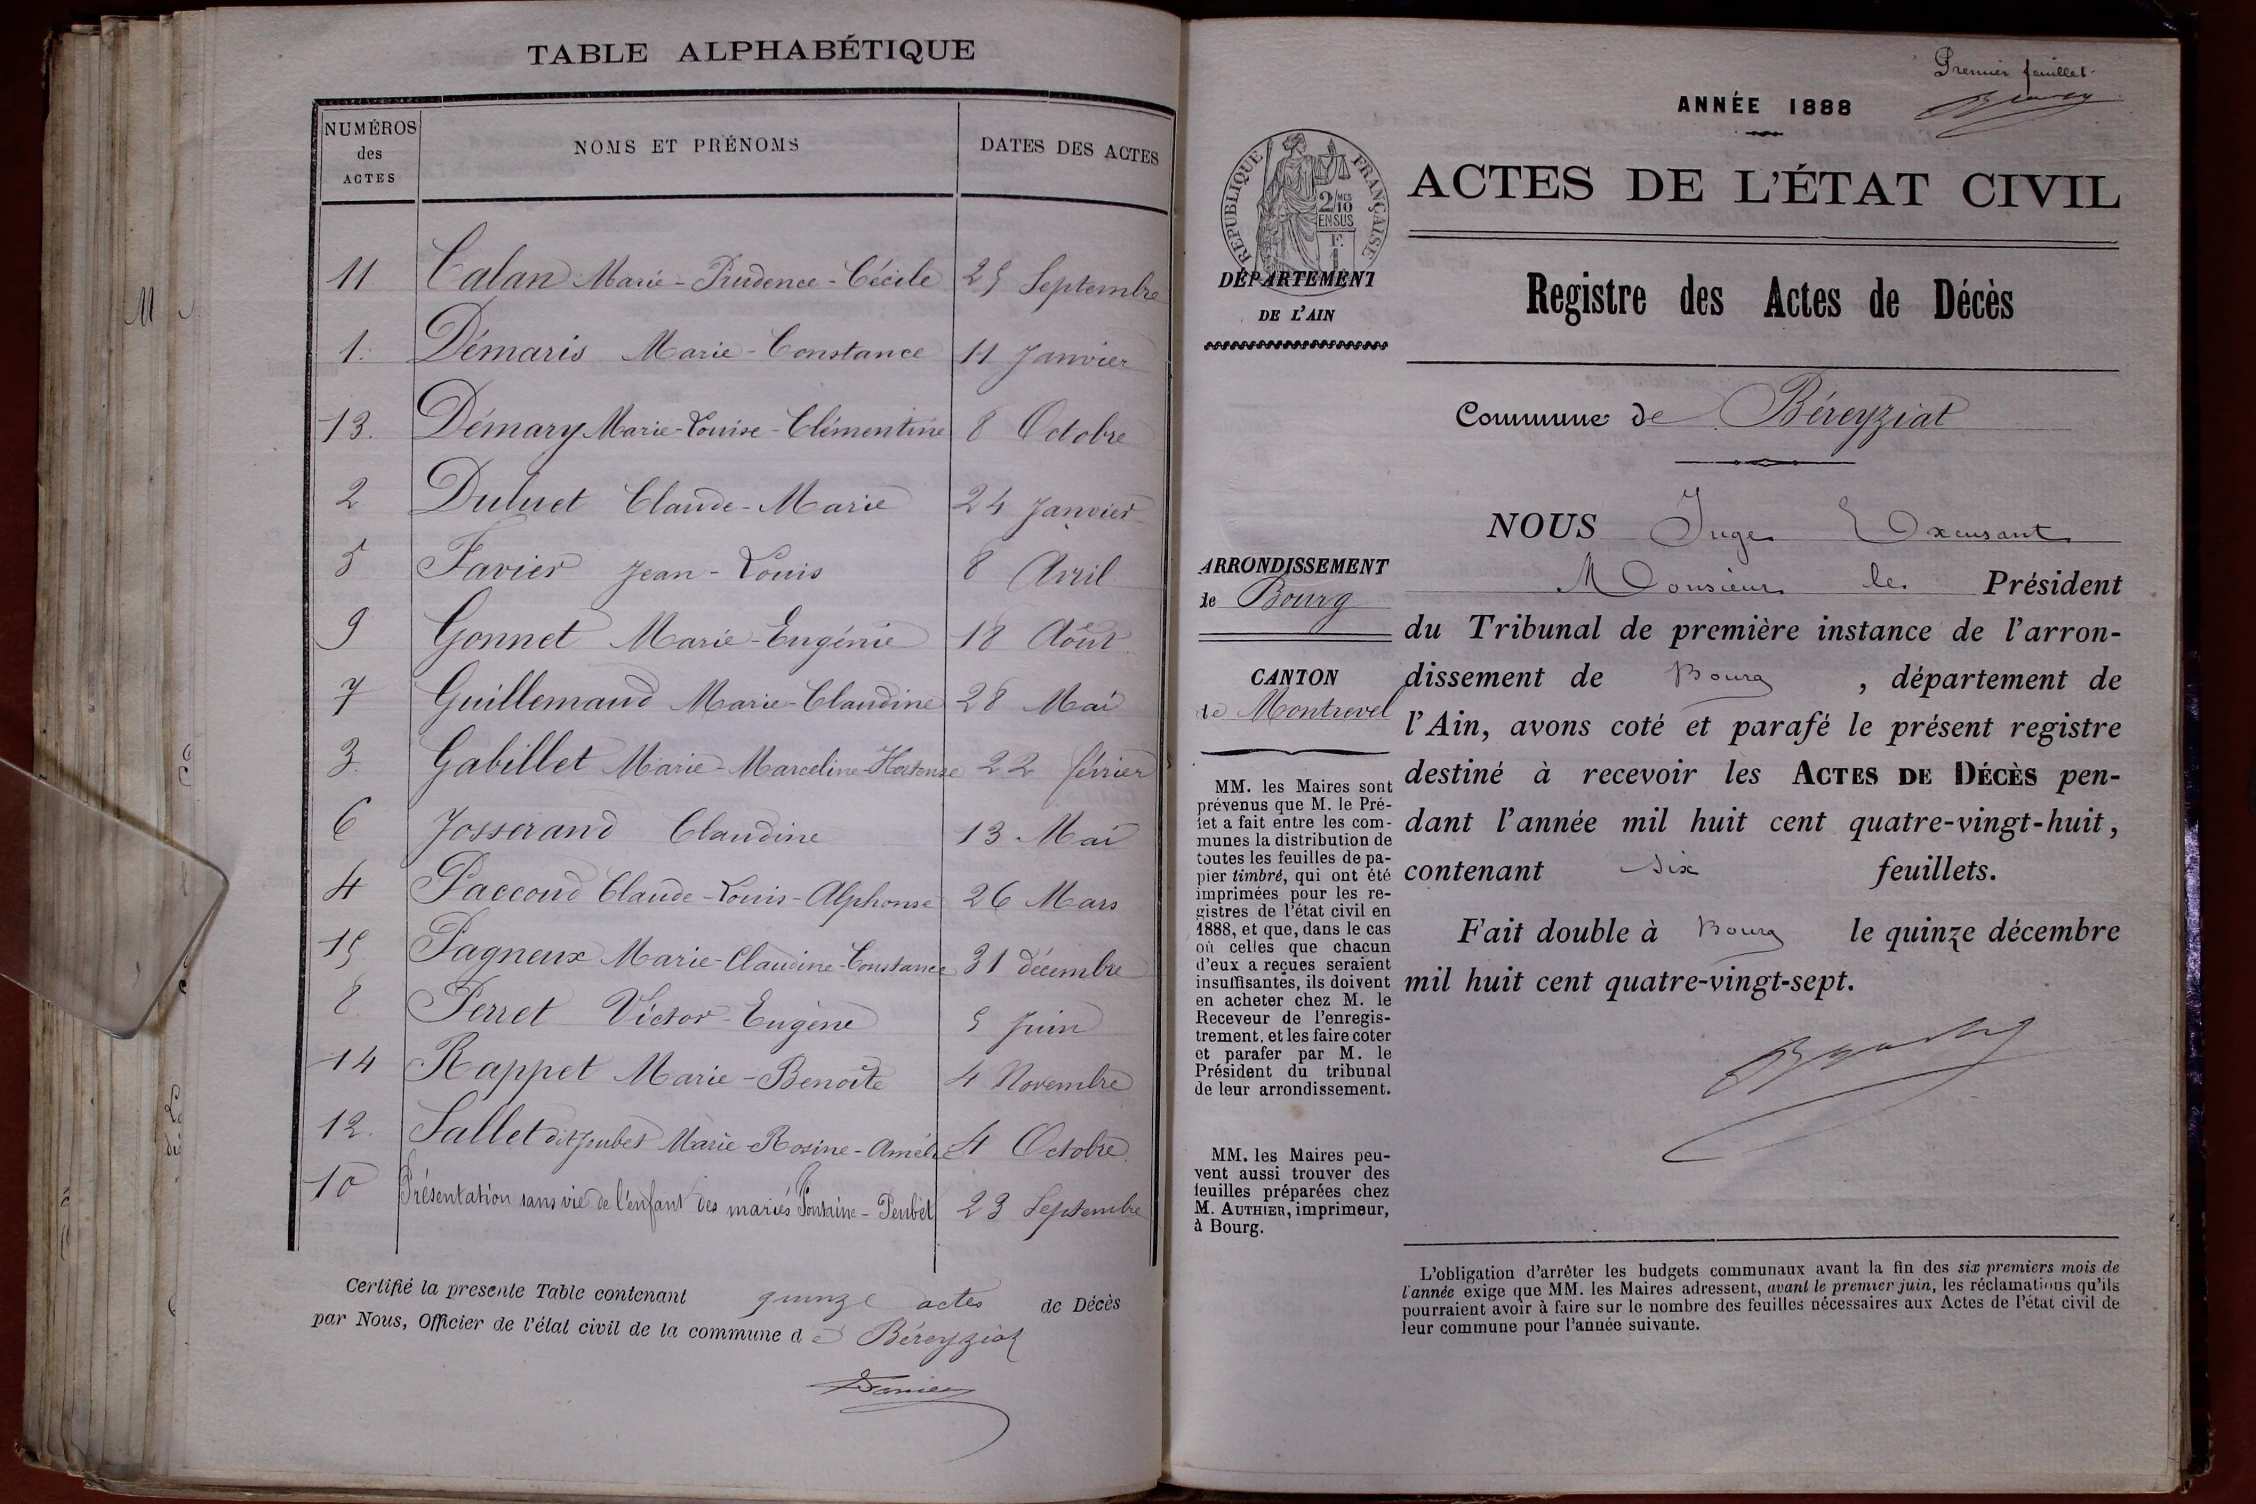 TABLE ALPHABÉTIQUE
NUMÉROS
des
ACTES
NOMS ET PRÉNOMS
DATES DES ACTES
11 Calan Marie-Prudence-Cécile 25 Septembre
1. Démaris Marie-Constance 11 Janvier
13. Démary Marie-Louise-Clémentine 8 Octobre
2 Duluet Claude-Marie 24 Janvier
5 Favier Jean-Louis 8 Avril
9 Gonnet Marie-Eugénie 18 Août
7 Guillemaud Marie-Claudine 28 Mai
3. Gabillet Marie-Marceline-Hortense 22 février
6 Josserand Claudine 13 Mai
4 Paccoud Claude-Louis-Alphonse 26 Mars
15 Pagneux Marie-Claudine-Constance 31 décembre
8. Perret Victor-Eugène 5 Juin
14 Rappet Marie-Benoîte 4 Novembre
12. Sallet dit Joubet Marie-Rosine-Amélie 4 Octobre
10 Présentation sans vie de l'enfant des mariés Fontaine-Penbet 23 Septembre
Certifié la presente Table contenant quinze actes de Décès
par Nous, Officier de l'état civil de la commune d e Béreyziat
Premier feuillet.
ANNÉE 1888
RÉPUBLIQUE FRANÇAISE
2/10
MES
EN SUS
ACTES DE L'ÉTAT CIVIL
DÉPARTEMENT
DE L'AIN
Registre des Actes de Décès
Commune de Béreyziat
ARRONDISSEMENT
de Bourg
CANTON
de Montrevel
MM. les Maires sont
prévenus que M. le Pré-
fet a fait entre les com-
munes la distribution de
toutes les feuilles de pa-
pier timbré, qui ont été
imprimées pour les re-
gistres de l'état civil en
1888, et que, dans le cas
où celles que chacun
d'eux a reçues seraient
insuffisantes, ils doivent
en acheter chez M. le
Receveur de l'enregis-
trement, et les faire coter
et parafer par M. le
Président du tribunal
de leur arrondissement.
MM. les Maires peu-
vent aussi trouver des
feuilles préparées chez
M. AUTHIER, imprimeur,
à Bourg.
NOUS Juge Excusant
Monsieur le Président
du Tribunal de première instance de l'arron-
dissement de Bourg , département de
l'Ain, avons coté et parafé le présent registre
destiné à recevoir les ACTES DE DÉCÈS pen-
dant l'année mil huit cent quatre-vingt-huit,
contenant six feuillets.
Fait double à Bourg le quinze décembre
mil huit cent quatre-vingt-sept.
L'obligation d'arrêter les budgets communaux avant la fin des six premiers mois de
l'année exige que MM. les Maires adressent, avant le premier juin, les réclamations qu'ils
pourraient avoir à faire sur le nombre des feuilles nécessaires aux Actes de l'état civil de
leur commune pour l'année suivante.